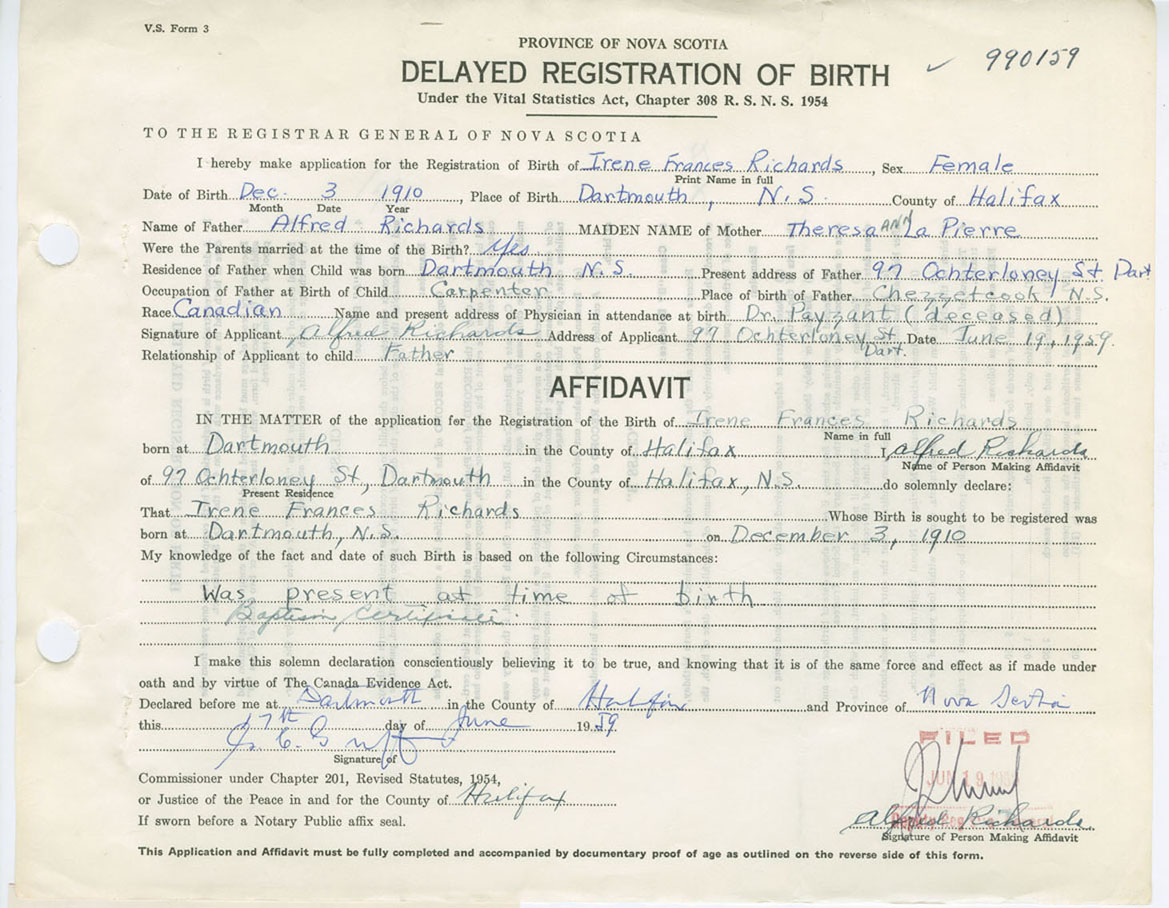 V.S. Form 3
PROVINCE OF NOVA SCOTIA
990159
DELAYED REGISTRATION OF BIRTH
Under the Vital Statistics Act, Chapter 308 R. S. N. S. 1954
TO THE REGISTRAR GENERAL OF NOVA SCOTIA
I hereby make application for the Registration of Birth of Irene Frances Richards, Sex Female
Print Name in full
Date of Birth Dec. 3 1910, Place of Birth Dartmouth, N.S. County of Halifax
Month Date Year
Name of Father Alfred Richards MAIDEN NAME of Mother Theresa ANN La Pierre
Were the Parents married at the time of the Birth? Yes
Residence of Father when Child was born Dartmouth N.S. Present address of Father 97 Ochterloney St Dart
Occupation of Father at Birth of Child Carpenter Place of birth of Father Chezzetcook, N.S.
Race Canadian Name and present address of Physician in attendance at birth Dr. Payzant (deceased)
Signature of Applicant Alfred Richards Address of Applicant 97 Ochterloney St. Dart. Date June 19, 1959.
Relationship of Applicant to child Father
AFFIDAVIT
IN THE MATTER of the application for the Registration of the Birth of Irene Frances Richards
Name in full
born at Dartmouth in the County of Halifax I, Alfred Richards
Name of Person Making Affidavit
of 97 Ochterloney St, Dartmouth in the County of Halifax, N.S. do solemnly declare:
Present Residence
That Irene Frances Richards Whose Birth is sought to be registered was
born at Dartmouth, N.S. on December 3, 1910
My knowledge of the fact and date of such Birth is based on the following Circumstances:
Was present at time of birth
Baptism Certificate
I make this solemn declaration conscientiously believing it to be true, and knowing that it is of the same force and effect as if made under
oath and by virtue of The Canada Evidence Act.
Declared before me at Dartmouth in the County of Halifax and Province of Nova Scotia
this day of June 1959
Signature of
FILED
JUN 19
Commissioner under Chapter 201, Revised Statutes, 1954,
or Justice of the Peace in and for the County of Halifax
Alfred Richards
If sworn before a Notary Public affix seal.
Signature of Person Making Affidavit
This Application and Affidavit must be fully completed and accompanied by documentary proof of age as outlined on the reverse side of this form.